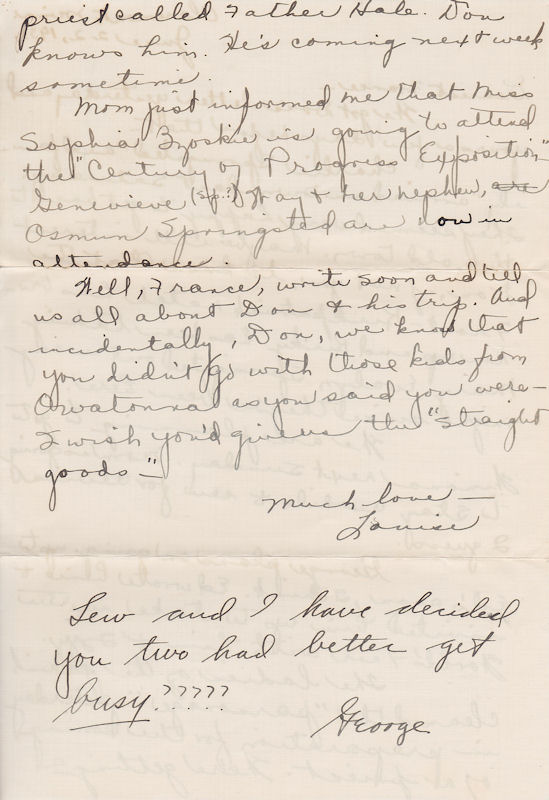 priest called Father Hale. Don
knows him. He's coming next week
sometime.
Mom just informed me that Miss
Sophia Bzoskie is going to attend
the "Century of Progress Exposition"
Genevieve (sp?) Hay & her nephew, are
Osmun Springsted are now in
attendance.
Well, France, write soon and tell
us all about Don & his trip. And
incidentally, Don, we know that
you didn't go with those kids from
Owatonna as you said you were—
I wish you'd give us the "straight
goods—"
Much love—
Louise
Lew and I have decided
you two had better get
busy?????
George